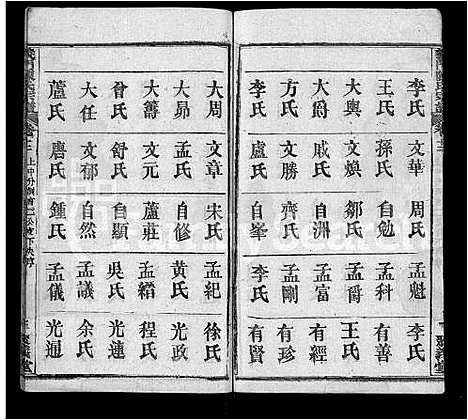 李氏 文華 周氏 孟魁 李氏
王氏 孫氏 自勉 孟科 有善
大輿 文煥 鄒氏 孟爵 王氏
大爵 戚氏 自淵 孟富 有經
方氏 文勝 齊氏 孟剛 有珍
李氏 盧氏 自峯 李氏 有賢
大周 文章 宋氏 孟紀 徐氏
大昴 孟氏 自修 黃氏 光政
大籌 文元 蘆莊 孟縉 程氏
曾氏 舒氏 自顯 吳氏 光蓮
大任 文郁 自然 孟議 余氏
蘆氏 唐氏 鍾氏 孟儀 光通